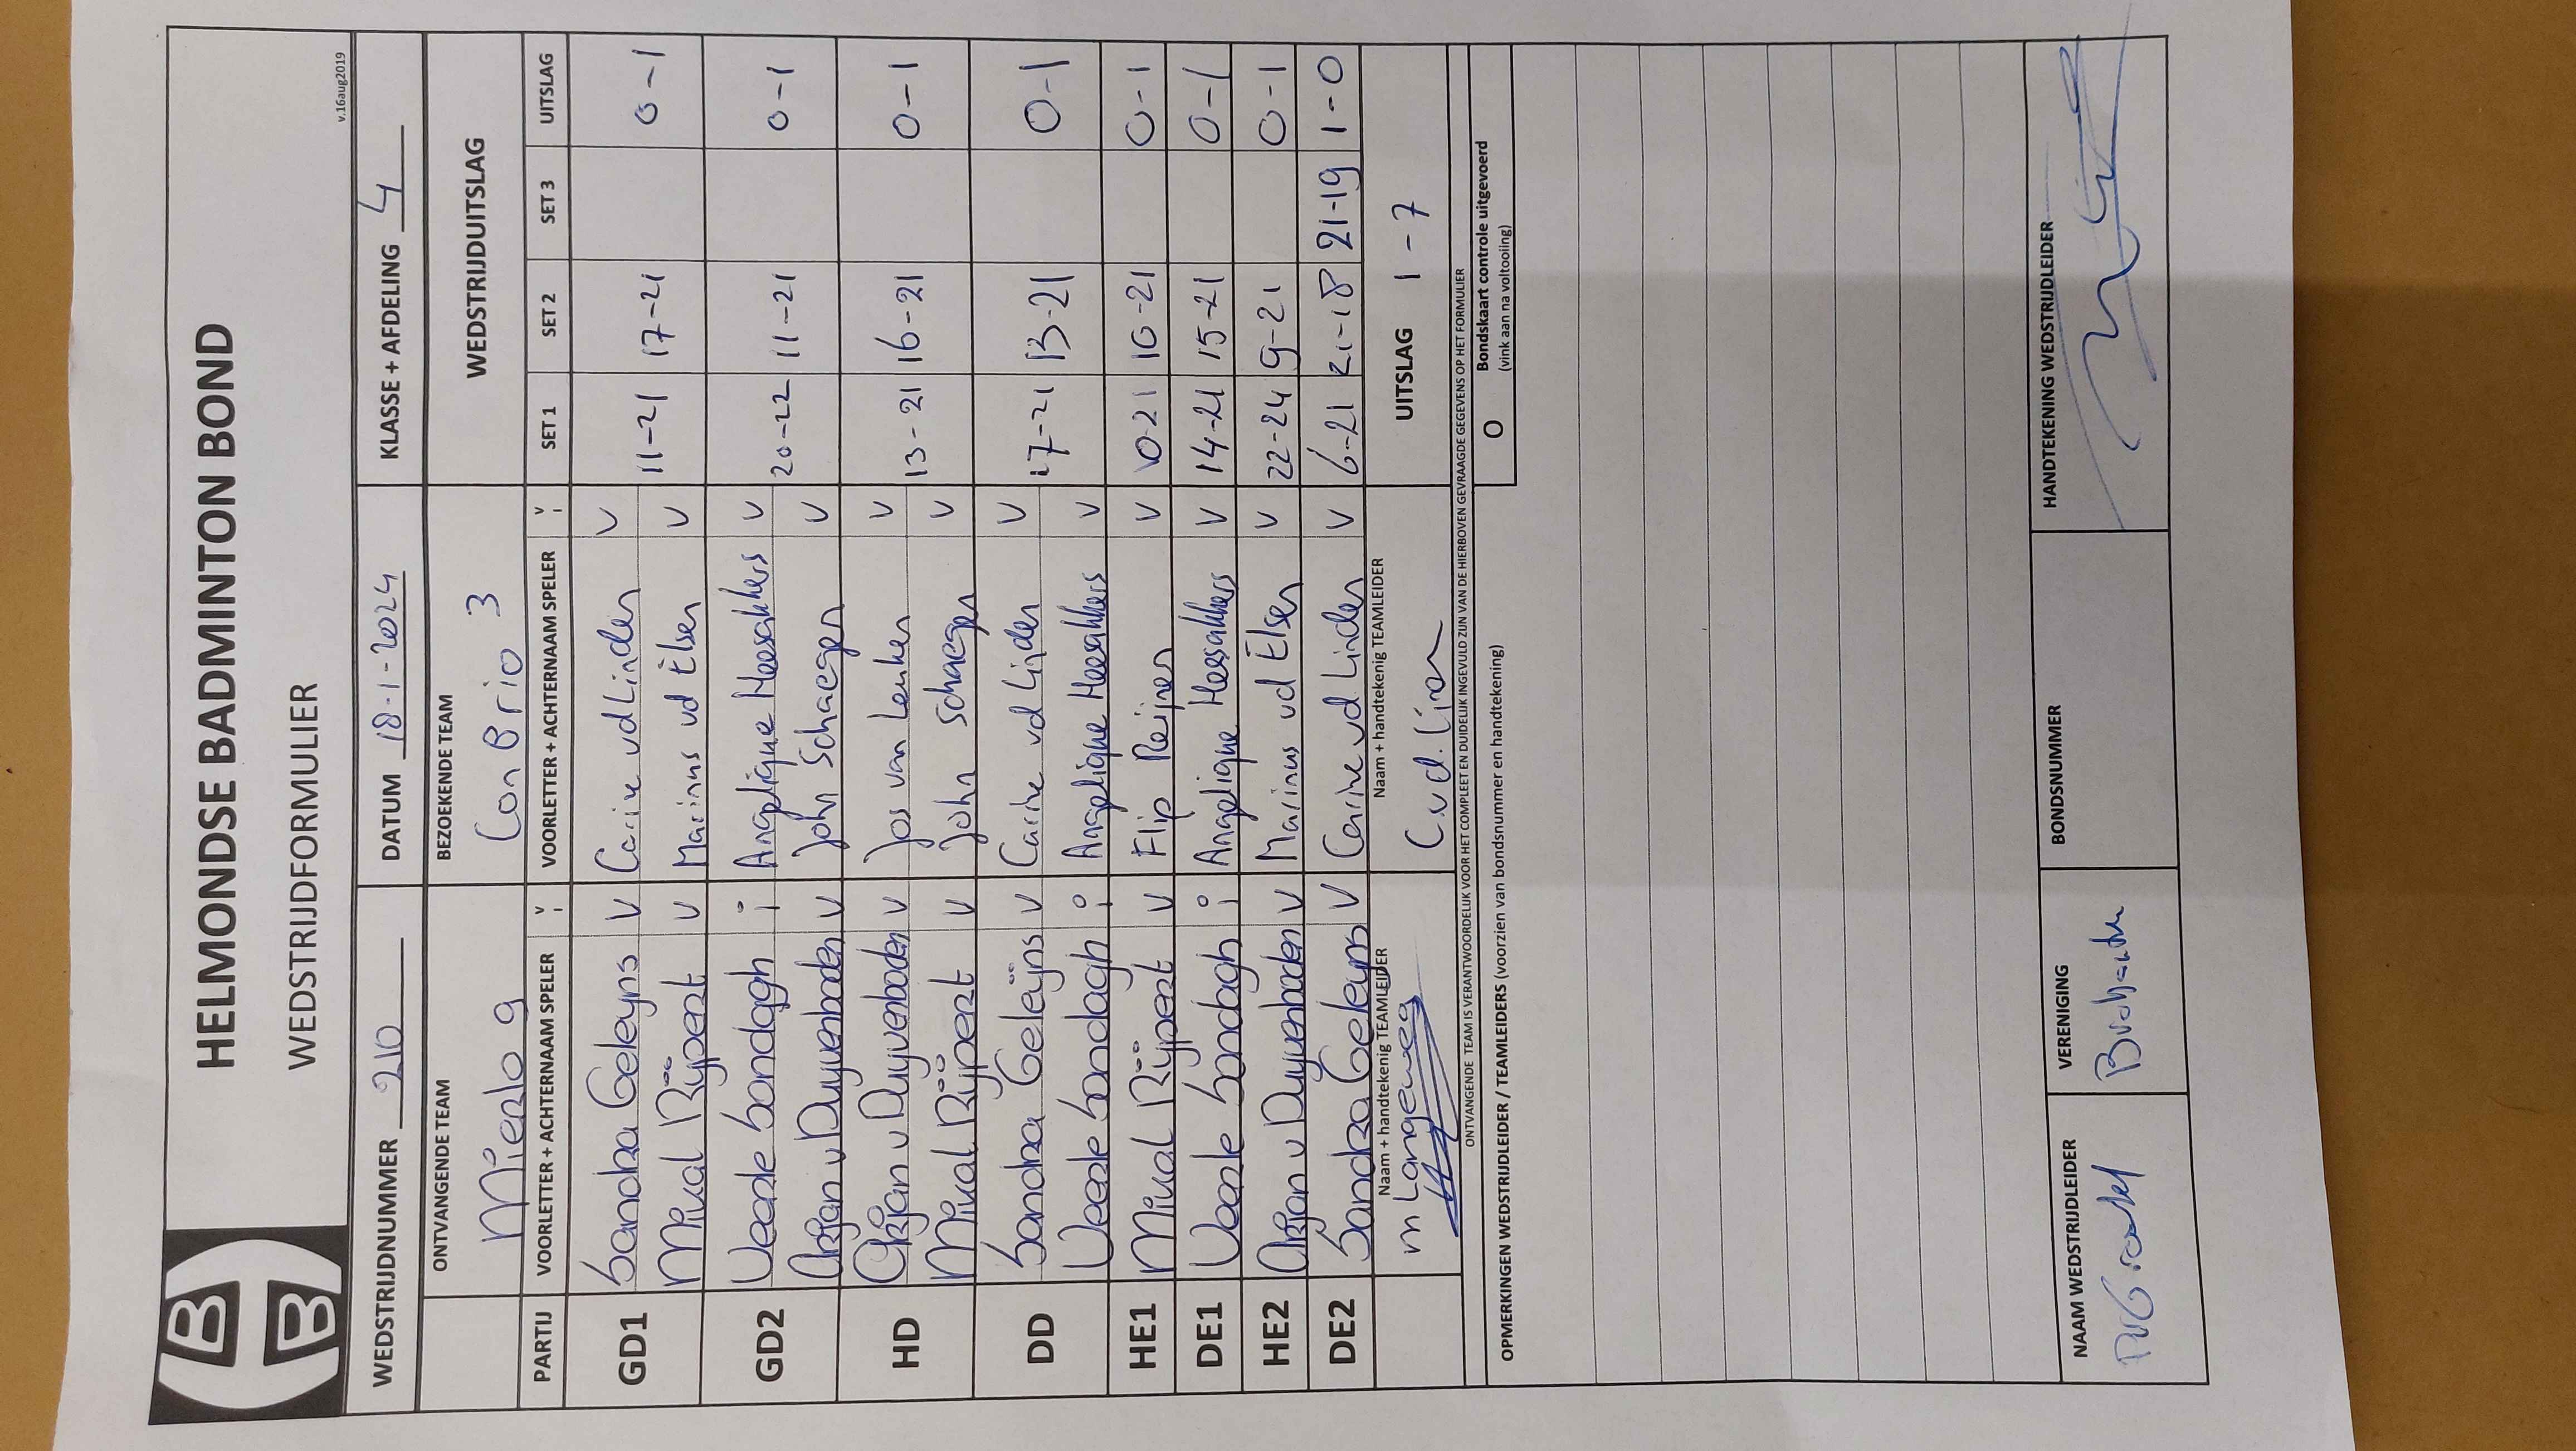 HBB
HELMONDSE BADMINTON BOND
WEDSTRIJDFORMULIER
v.16aug2019
WEDSTRIJDNUMMER 210 DATUM 18-1-2024 KLASSE + AFDELING 4
ONTVANGENDE TEAM BEZOEKENDE TEAM WEDSTRIJDUITSLAG
Mierlo 9 Con Brio 3
PARTIJ VOORLETTER + ACHTERNAAM SPELER V I VOORLETTER + ACHTERNAAM SPELER V I SET 1 SET 2 SET 3 UITSLAG
GD1 Sandra Geleyns V Carine vd Linden V 11-21 17-21 0-1
Mival Rijpert V Marinus vd Elsen V
GD2 Veerle Sondagh i Angelique Heesakkers V 20-22 11-21 0-1
Arjan v Duyvenboden V John Schaegen V
HD Arjan v Duyvenboden V Jos van Leuken V 13-21 16-21 0-1
Mival Rijpert V John Schaegen V
DD Sandra Geleijns V Carine vd Linden V 17-21 13-21 0-1
Veerle Sondagh i Angelique Heesakkers V
HE1 Mival Rijpert V Flip Reijnen V 10-21 10-21 0-1
DE1 Veerle Sondagh i Angelique Heesakkers V 14-21 15-21 0-1
HE2 Arjan v Duyvenboden V Marinus vd Elsen V 22-24 9-21 0-1
DE2 Sandra Geleyns V Carine vd Linden V 6-21 21-18 21-19 1-0
Naam + handtekenig TEAMLEIDER Naam + handtekenig TEAMLEIDER UITSLAG 1-7
m Langeweg C.vd.
ONTVANGENDE TEAM IS VERANTWOORDELIJK VOOR HET COMPLEET EN DUIDELIJK INGEVULD ZIJN VAN DE HIERBOVEN GEVRAAGDE GEGEVENS OP HET FORMULIER
OPMERKINGEN WEDSTRIJDLEIDER / TEAMLEIDERS (voorzien van bondsnummer en handtekening) O Bondskaart controle uitgevoerd
(vink aan na voltooiing)
NAAM WEDSTRIJDLEIDER VERENIGING BONDSNUMMER HANDTEKENING WEDSTRIJDLEIDER